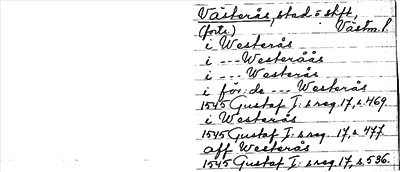 Västerås, stad o stift,
(forts.) Västm l.
i Westerås
i --- Westeråås
i --- Westerås
i för: de --- Westerås
1545 Gustaf I: s reg. 17, s. 469.
i Westerås
1545 Gustaf I: s reg. 17, s. 477
aff Westerås
1545 Gustaf I: s reg. 17, s. 536.